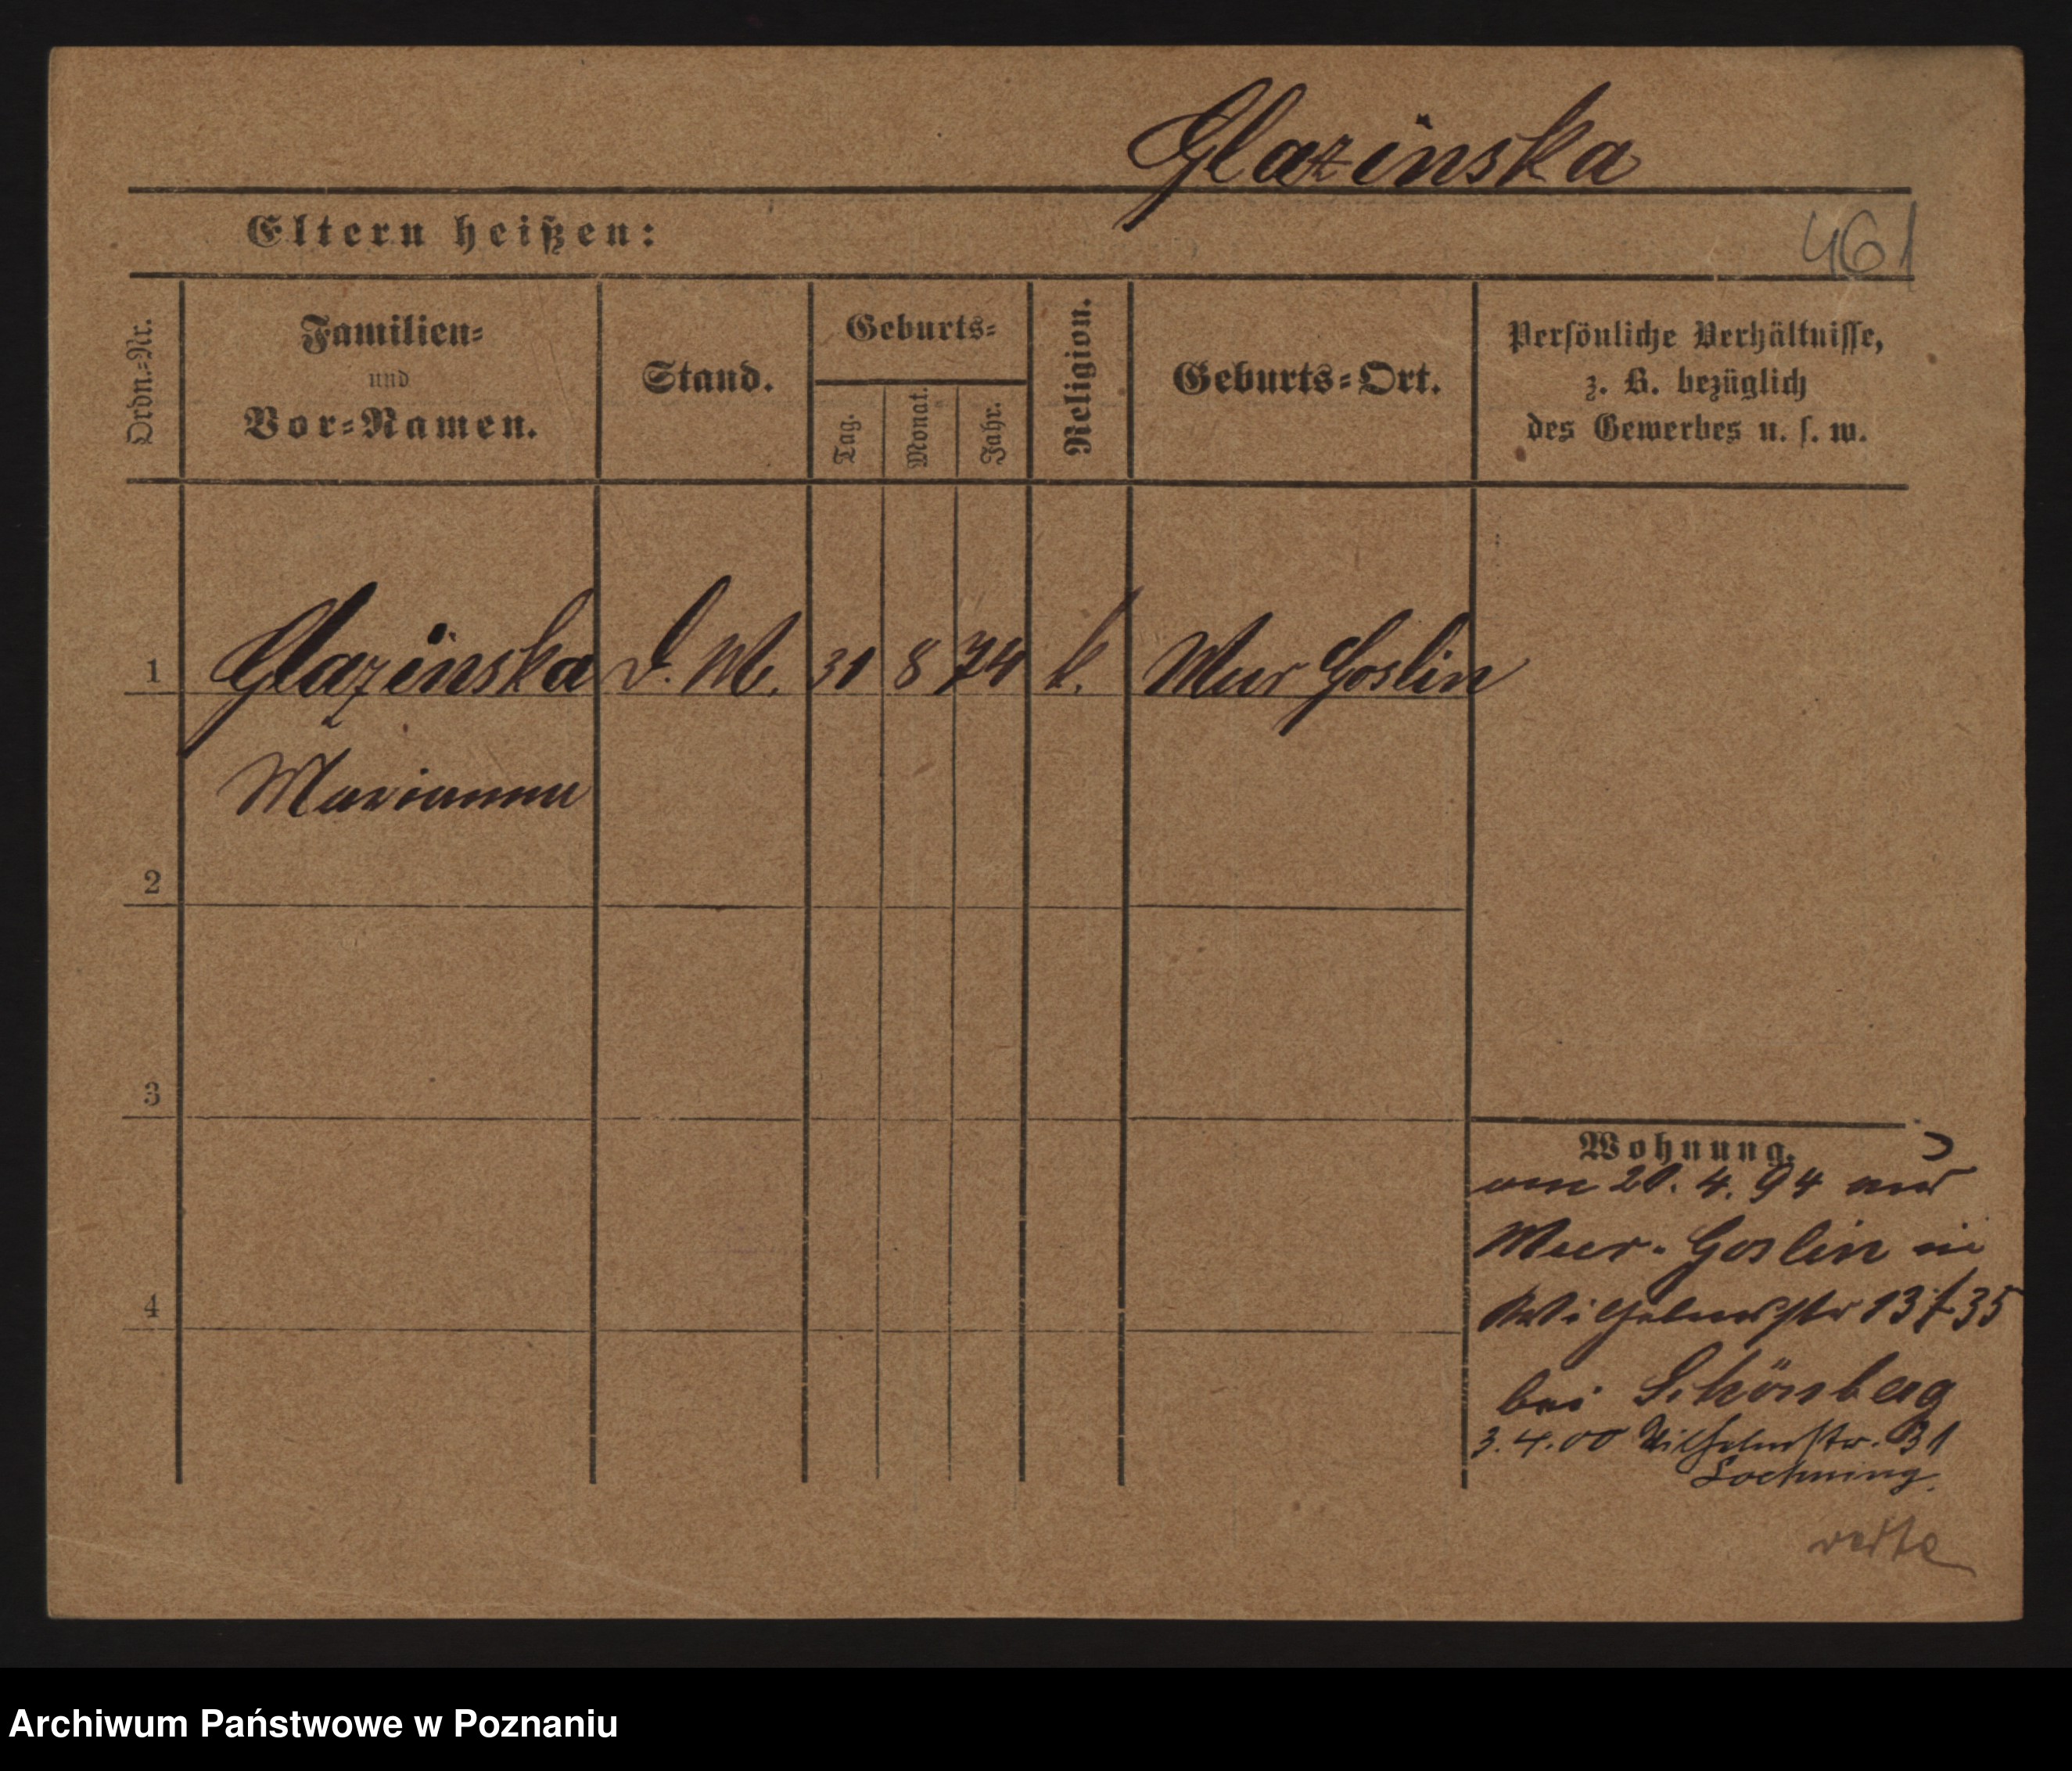 Glazinska
Eltern heißen:
461
Ordn.-Nr.
Familien-
und
Vor-Namen.
Stand.
Geburts-
Tag.
Monat.
Jahr.
Religion.
Geburts-Ort.
Persönliche Verhältnisse,
z. B. bezüglich
des Gewerbes u. s. w.
1 Glazinska D. M. 31 8 74 k. Mur Goslin
Marianna
2
3
4
Wohnung.
am 20. 4. 94 aus
Mur. Goslin in
Wilhelmstr 13 35
bei Schönberg
3. 4. 00 Wilhelmstr. 31
verte
Archiwum Państwowe w Poznaniu